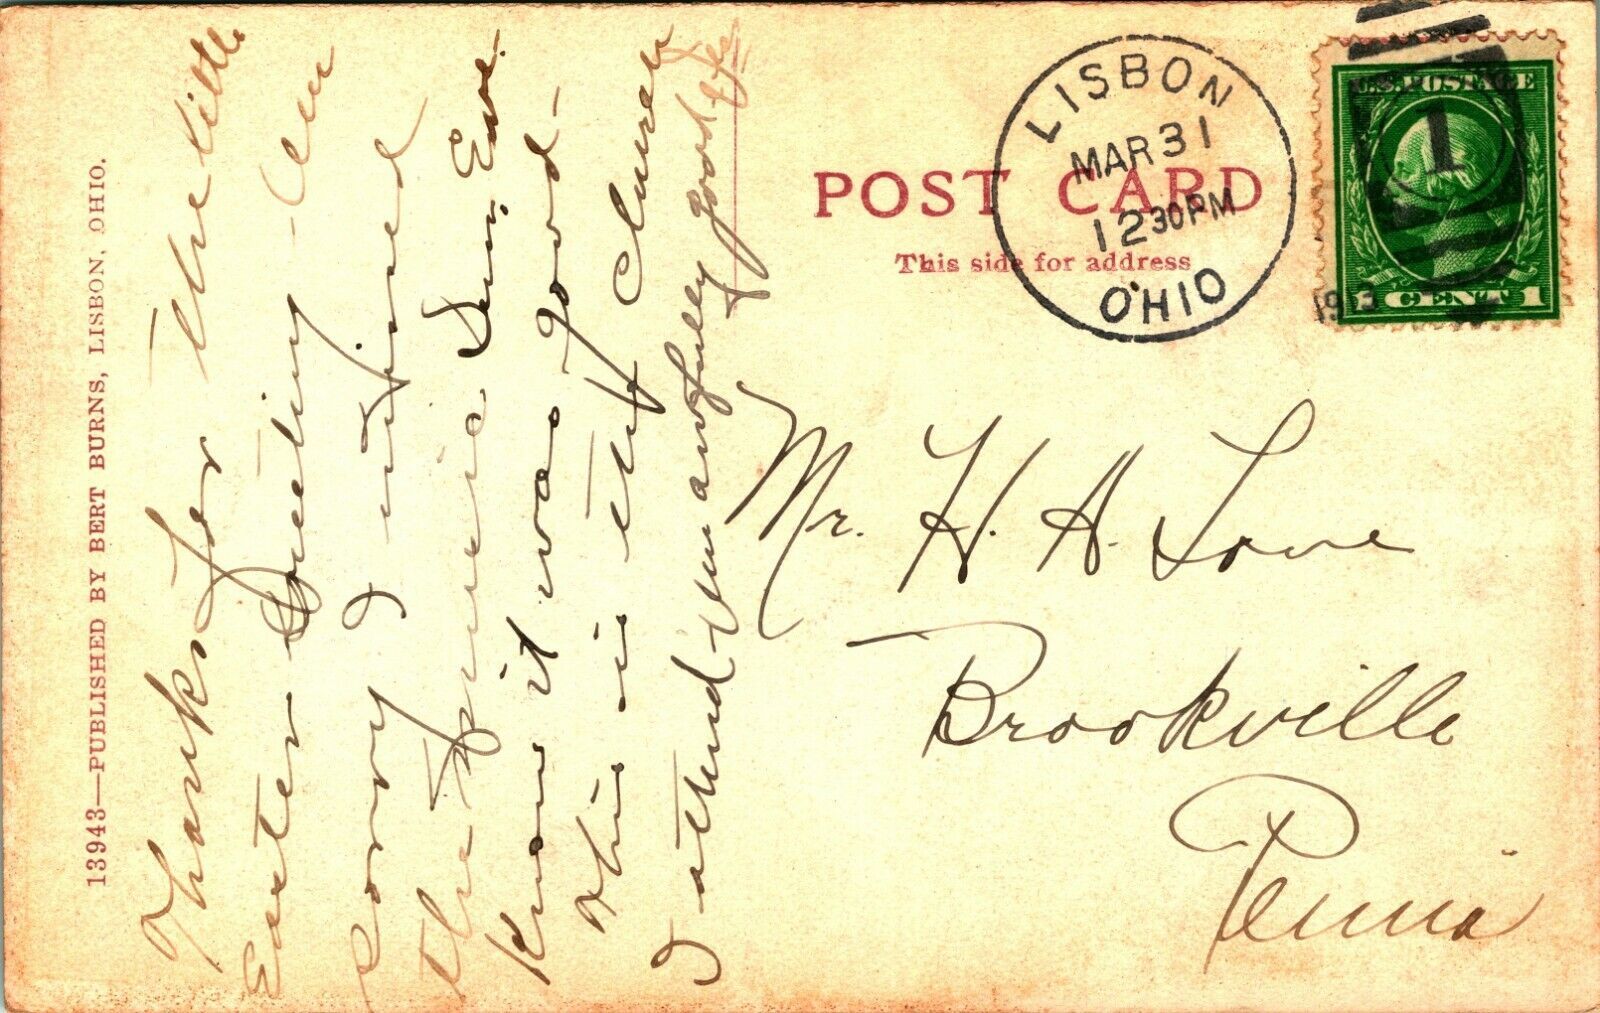 13943—PUBLISHED BY BERT BURNS, LISBON, OHIO.
Thanks for the little
Easter Greeting - Am
sorry I missed
the music Sun. Eve.
Know it was good -
This is the church
I attend Am awfully good
POST CARD
This side for address
LISBON
MAR 31
12 30PM
1913
OHIO
U.S. POSTAGE
1
CENT 1
Mr. H. A. Love
Brookville
Penna